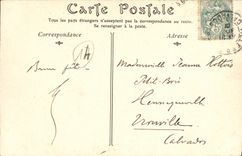 Carte Postale
Tous les pays étrangers n'acceptent pas la correspondance au recto.
Se renseigner à la poste.
Correspondance
Adresse
Bonne fête
Mademoiselle Jeanne
Petit Bois
Hennequeville
Trouville
Calvados